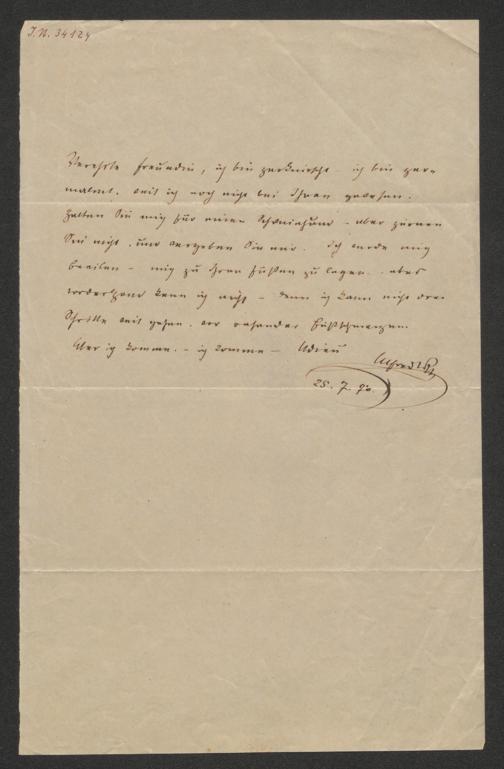 I.N. 34124
Verehrte Freundin, ich bin zerknirscht – ich bin zer-
malmt, weil ich noch nicht bei Ihnen gewesen.
Halten Sie mich für einen Schweinehund – aber zürnen
Sie nicht, und vergeben Sie mir. Ich werde mich
beeilen – mich zu Ihren Füßen zu legen, aber
vorderhand kann ich nicht – denn ich kann nicht drei
Schritte weit gehen, vor rasender Fußschmerzen.
Aber ich komme. – ich komme – Adieu
Alfred
25. 7. 90.